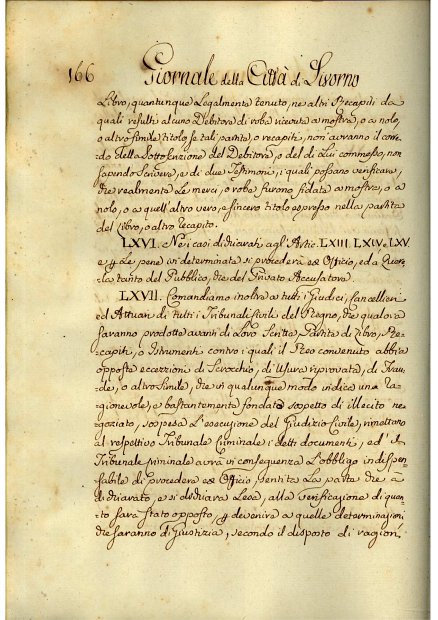 166 Giornale della Città di Livorno
Libro, quantunque Legalmente tenuto, ne altri Recapiti da
quali resulti alcuno Debitore di roba ricevuta a mostra, o a nolo,
o altro simile titolo se tali partite, o recapiti, non avranno il corre,
do della Sottoscrizione del Debitore, o del di Lui commesso, non
sapendo Scrivere, e di due Testimoni, i quali possano verificare,
che realmente Le merci, o robe furono fidate a mostra, o a
nolo, o a quell'altro vero, e sincero titolo espresso nella partita
del Libro, o altro recapito.
LXVI. Ne i casi dichiarati agl'Artic. LXIII. LXIV. e LXV.
e Le pene ivi determinate si procederà ex Officio, ed a Quere,
la tanto del Pubblico, che del Privato Accusatore.
LXVII. Comandiamo inoltre a tutti i Giudici, Cancellieri
ed Attuari di tutti i Tribunali Civili del Regno, che qualora
saranno prodotte avanti di Loro Scritte, Partite di Libro, Re,
capiti, o Istrumenti contro i quali il Reo convenuto abbia
opposta eccezzioni di Scrocchio, di Usura riprovata, di Frau,
de, o altro Simile, che in qualunque modo indica una ra,
gionevole, e bastantemente fondato sospetto di illecito ne,
goziato, sospesa L'esecuzione del Giudizio Civile, rimettano
al respettivo Tribunale Criminale i detti documenti, ed il
Tribunale Criminale avrà in conseguenza L'obbligo indispen,
sabile di procedere ex Officio, sentita La parte che à
dichiarato, e si dichiara Lesa, alla verificazione di quan,
to sarà stato opposto, e devenire a quelle determinazioni
che saranno di Giustizia, secondo il disposto di ragion.